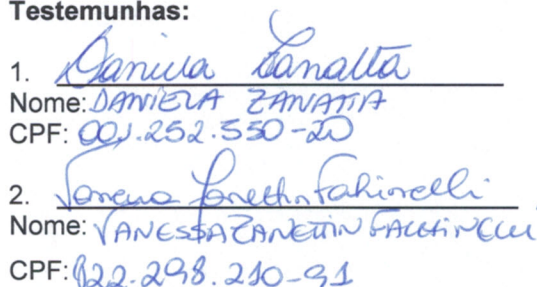 Testemunhas:
1. Daniela Zanatta
Nome: DANIELA ZANATTA
CPF: 001.252.550-20
2. Vanessa Zanettin
Nome: VANESSA ZANETTIN
CPF: 922.298.210-91